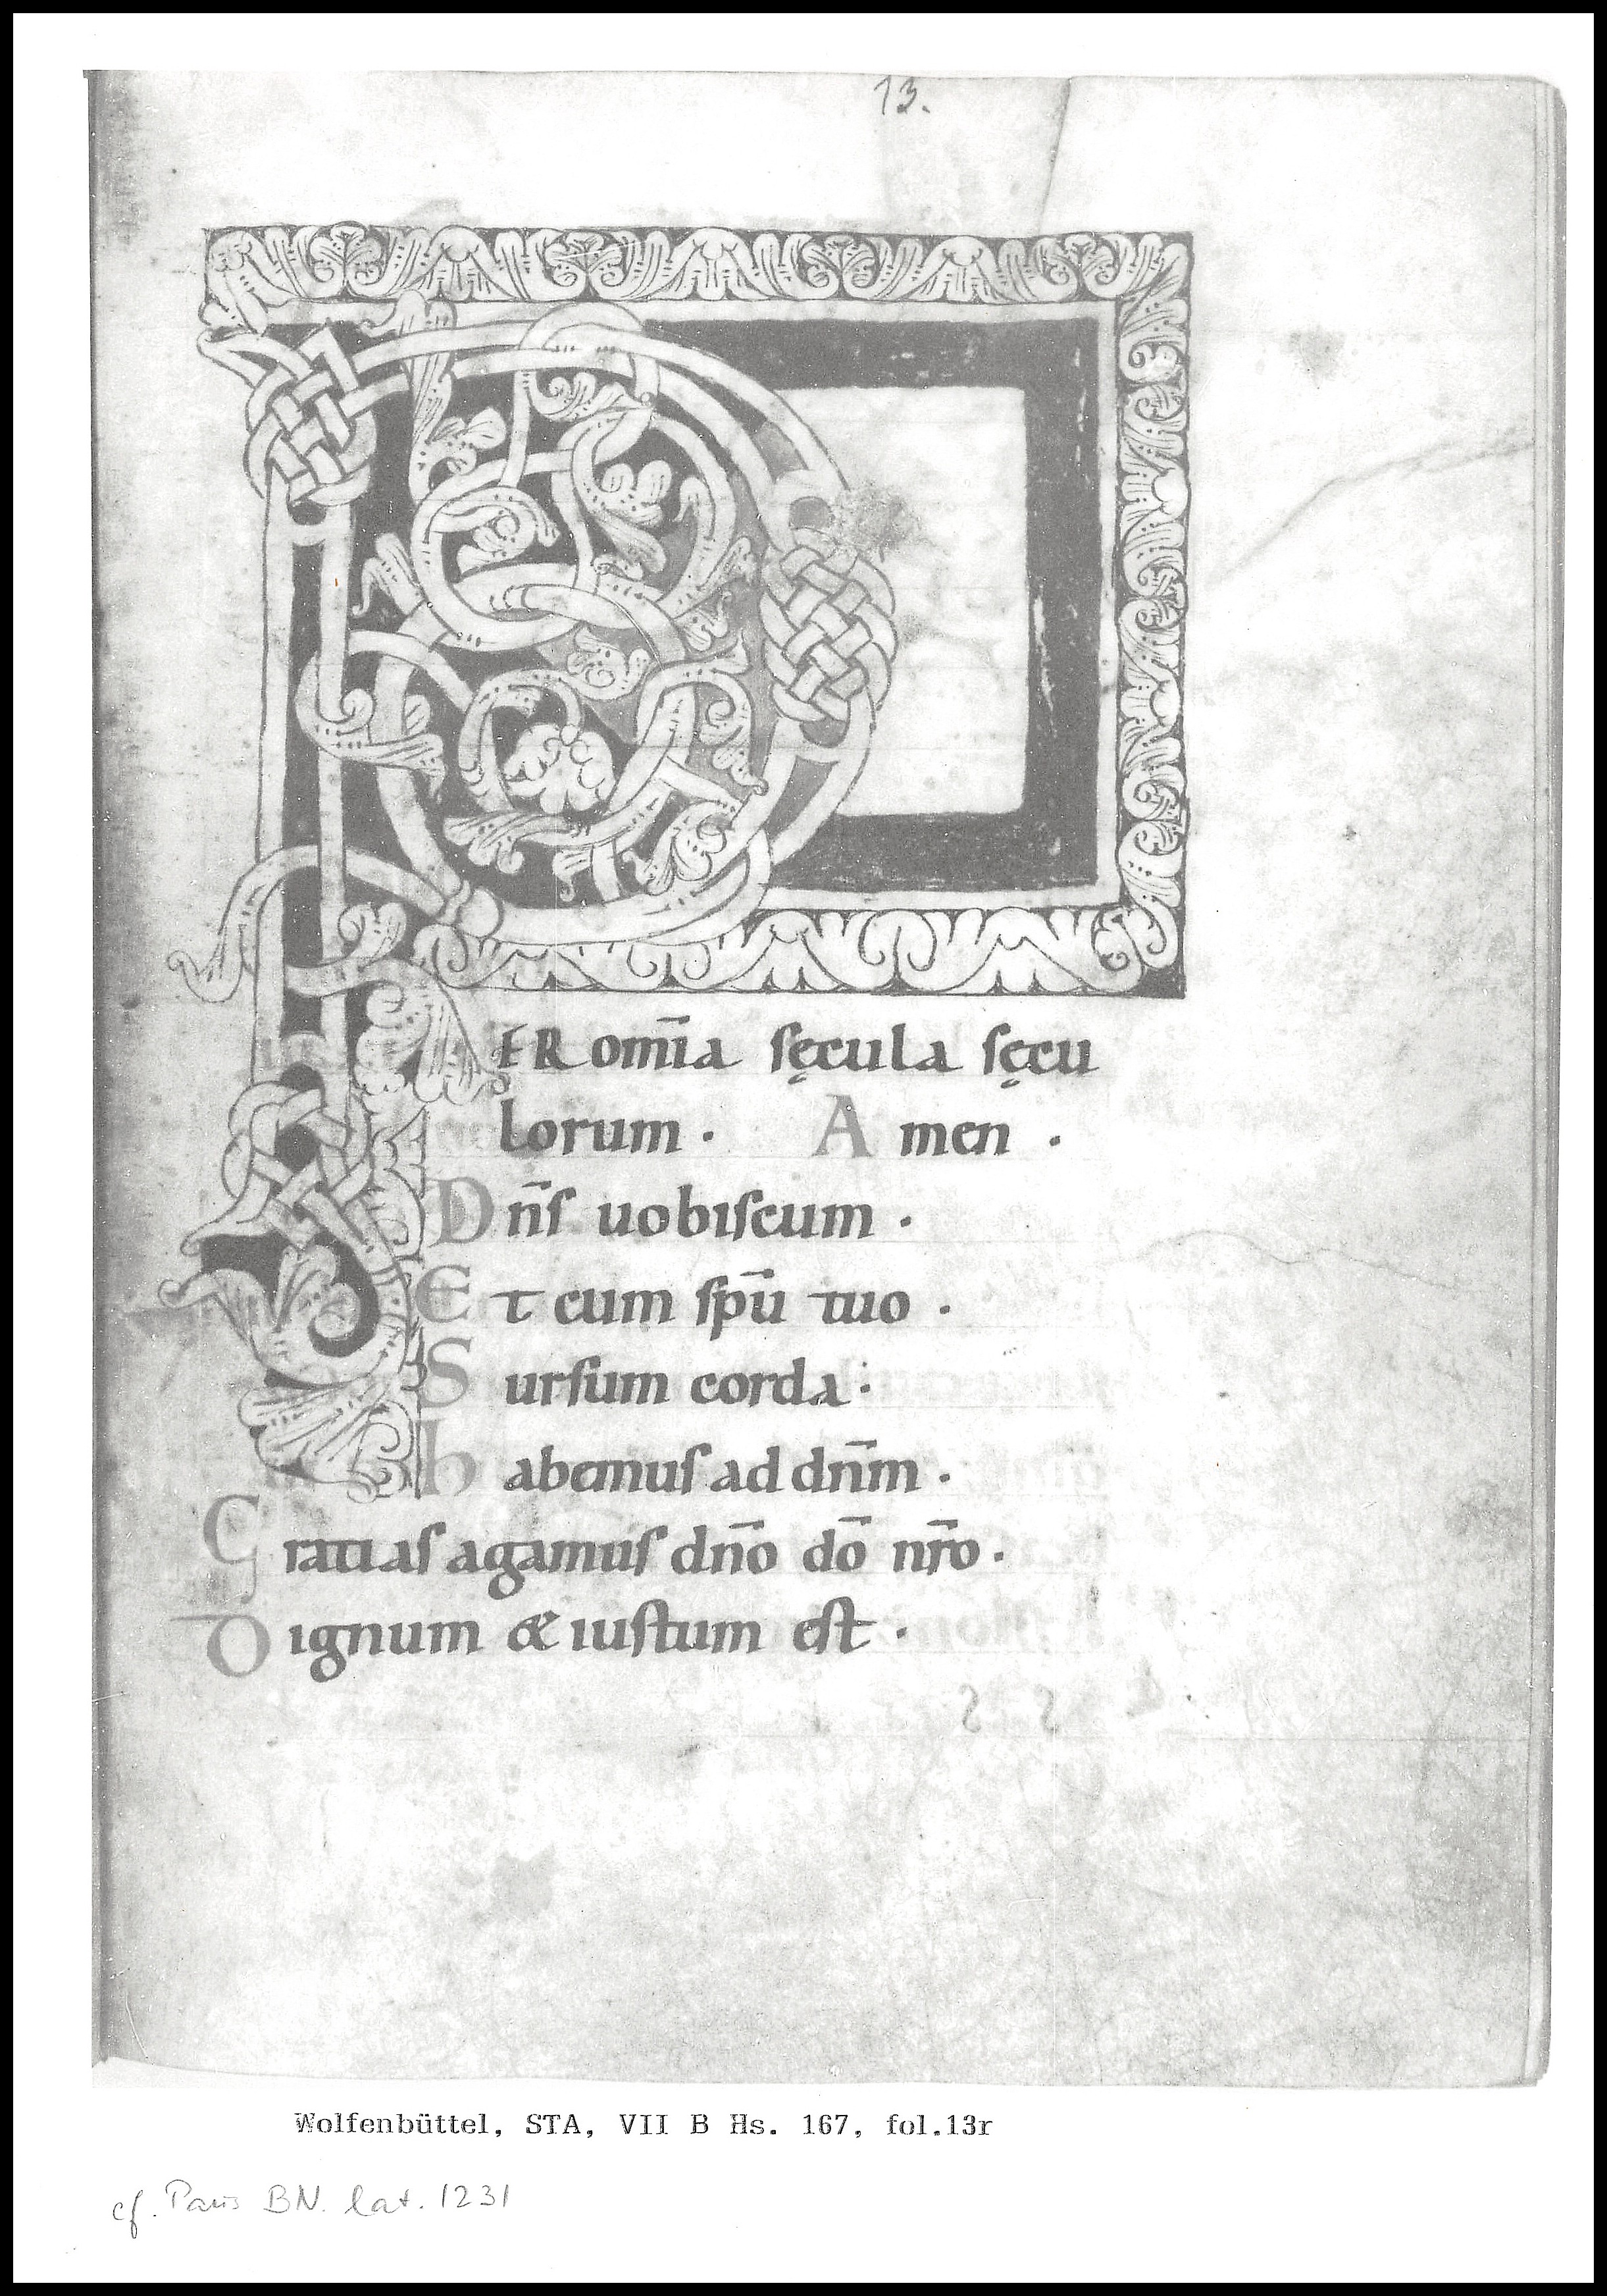 13.
PER om̄ia sęcula sęcu
lorum. Amen.
Dn̄s uobiscum.
Et cum sp̄u tuo.
Sursum corda:
habemus ad dn̄m.
Gratias agamus dn̄o dō nr̄o.
Dignum & iustum est.
Wolfenbüttel, STA, VII B Hs. 167, fol.13r
cf. Paris BN. lat. 1231